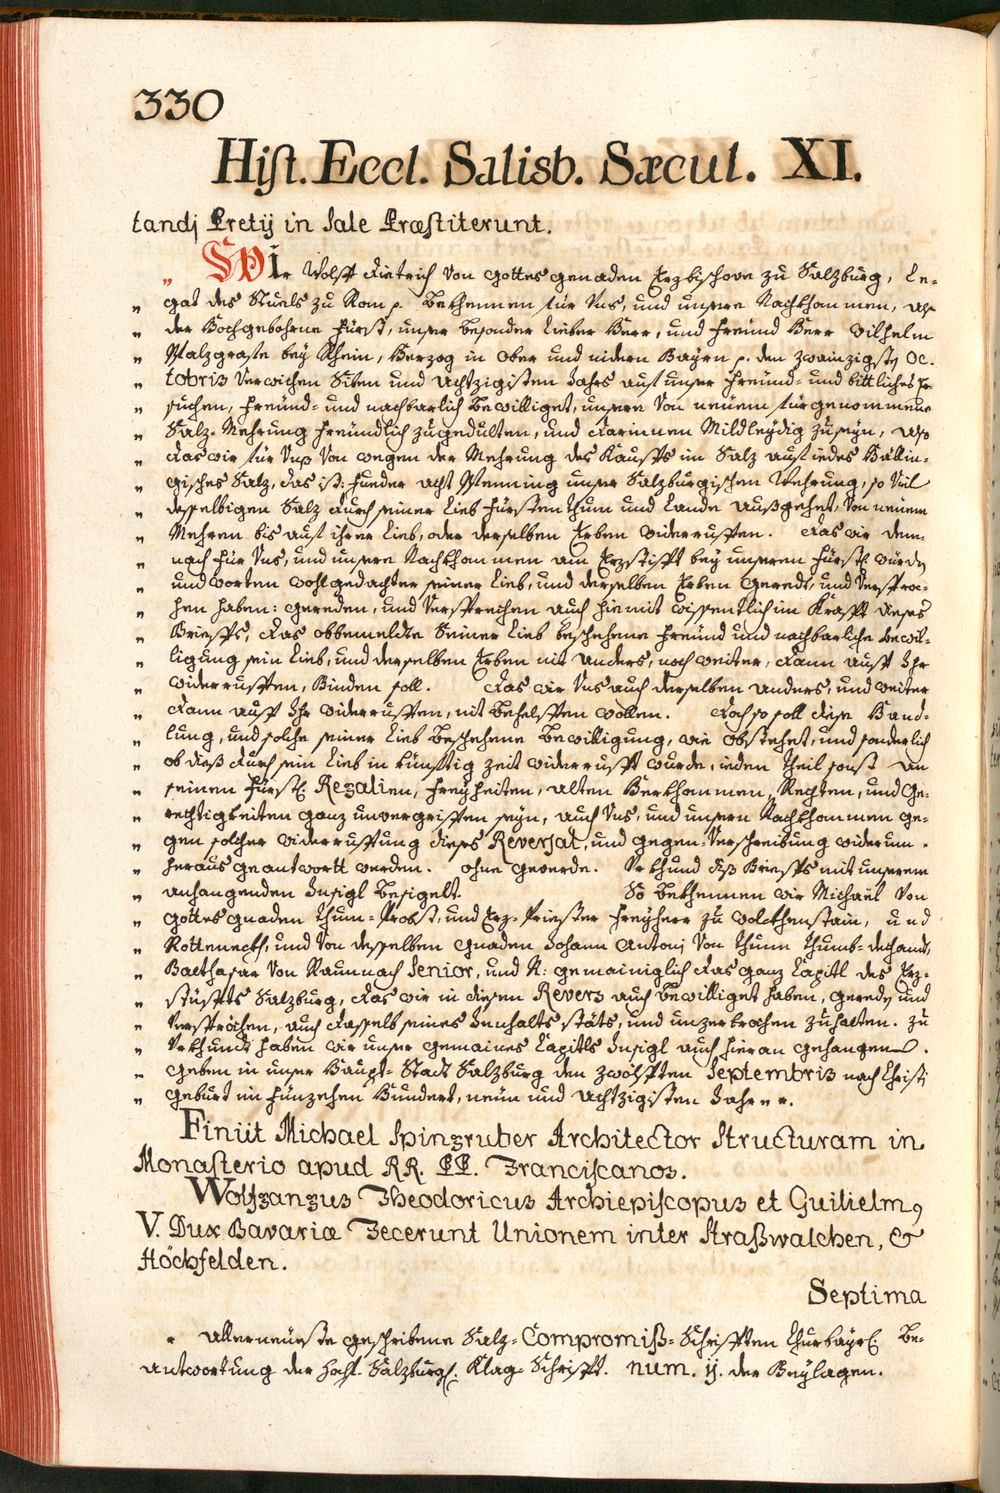 330
Hist. Eccl. Salisb. Sæcul. XI.
tandj Pretij in Sale Præstiterunt.
„ Wir Wolff Dietrich von Gottes genaden Erzbischove zu Salzburg, Le-
„ gat des Stuels zu Rom p. Bekhennen für Uns, und unsere Nachkhommen, als
„ der Hochgebohrne Fürst, unser besonder Lieber Herr, und Freund Herr Wilhelm
„ Pfalzgrafe bey Rhein, Herzog in Ober und nidern Bayrn p. den zwainzigsten Oc-
„ tobris verwichen Siben und Achtzigisten Jahrs auf unser freünd- und bittliches Er-
„ suchen, freünd- und nachbarlich bewilliget, unsere von neüem fürgenommene
„ Salz-Mehrung freündlich zugedulten, und darinnen Mildleÿdig zuseÿn, also
„ das wir für Uns von wegen der Mehrung des Kauffs im Salz auf iedes Hällin-
„ gisches Salz, das ist: Fueder acht Pfenning unser Salzburgischen Wehrung, so vil
„ desselbigen Salz durch seiner Lieb Fürstenthum und Lande außgehet, von neüem
„ Mehren bis auf ihrer Lieb, oder derselben Erben widerruffen. Das wir dem-
„ nach für Uns, und unsere Nachkhommen am Erzstifft bey unseren Fürstl. würden
„ und worten wohlgedachter seiner Lieb, und derselben Erben geredt, und verspro-
„ chen haben: gereden, und versprechen auch hiemit wissentlich im Krafft dieses
„ Brieffs, das obbemeldte Seiner Lieb beschehene freünd und nachbarliche bewil-
„ ligung sein Lieb, und derselben Erben nit anders, noch weiter, dann auff Ihr
„ widerruffen, Binden soll. Das wir Uns auch derselben anders, und weiter
„ dann auff Ihr widerruffen, nit behelffen wollen. Doch so soll diese Hand-
„ lung, und solche seiner Lieb beschehene bewilligung, wie obstehet, und sonderlich
„ ob dieß durch sein Lieb in künftig zeit widerrufft wurde, ieden theil sonst an
„ seinen Fürstl. Regalien, Freyheiten, alten Herkhommen, Rechten, und Ge-
„ rechtigkeiten ganz unvergriffen seyn, auch Uns, und unsern Nachkhommen ge-
„ gen solcher widerruffung dieses Reversal, und gegen-Verschreibung widerum-
„ heraus geantwortt werden. ohne geverde. Urkhund diß Brieffs mit unserem
„ anhangenden Insigl besigelt. So bekhennen wir Michaël von
„ Gottes gnaden Thum-Probst, und Erz-Priester Freyherr zu Wolckhenstain, und
„ Rottenegth, und von desselben gnaden Johann Antonj von Thunn Thumb-dechandt,
„ Balthasar von Raunnach Senior, und N: gemainiglich das ganz Capitl des Erz-
„ stüffts Salzburg, das wir in diesen Revers auch bewilliget haben, gereden und
„ versprochen, auch dasselb seines Innhalts stäts, und unzerbrochen zuhalten. zu
„ Urkhundt haben wir unser gemaines Capitls Insigl auch hieran gehangen.
„ Geben in unser Haupt-Stadt Salzburg den zwölfften Septembris nach Christi
„ geburt im Fünzehen Hundert, neün und Achtzigisten Jahr „ „.
Finiit Michael Spingruber Architector Structuram in
Monasterio apud RR. PP. Franciscanos.
Wolfgangus Theodoricus Archiepiscopus et Guilielmꝯ
V. Dux Bavariæ Fecerunt Unionem inter Straßwalchen, &
Höchfelden.
Septima
* Allerneüeste geschribene Salz-Compromiß-Schrifften Churbayrl. Be-
antwortung der Hochf. Salzburgl. Klag-Schrifft. num. ij. der Beylagen.